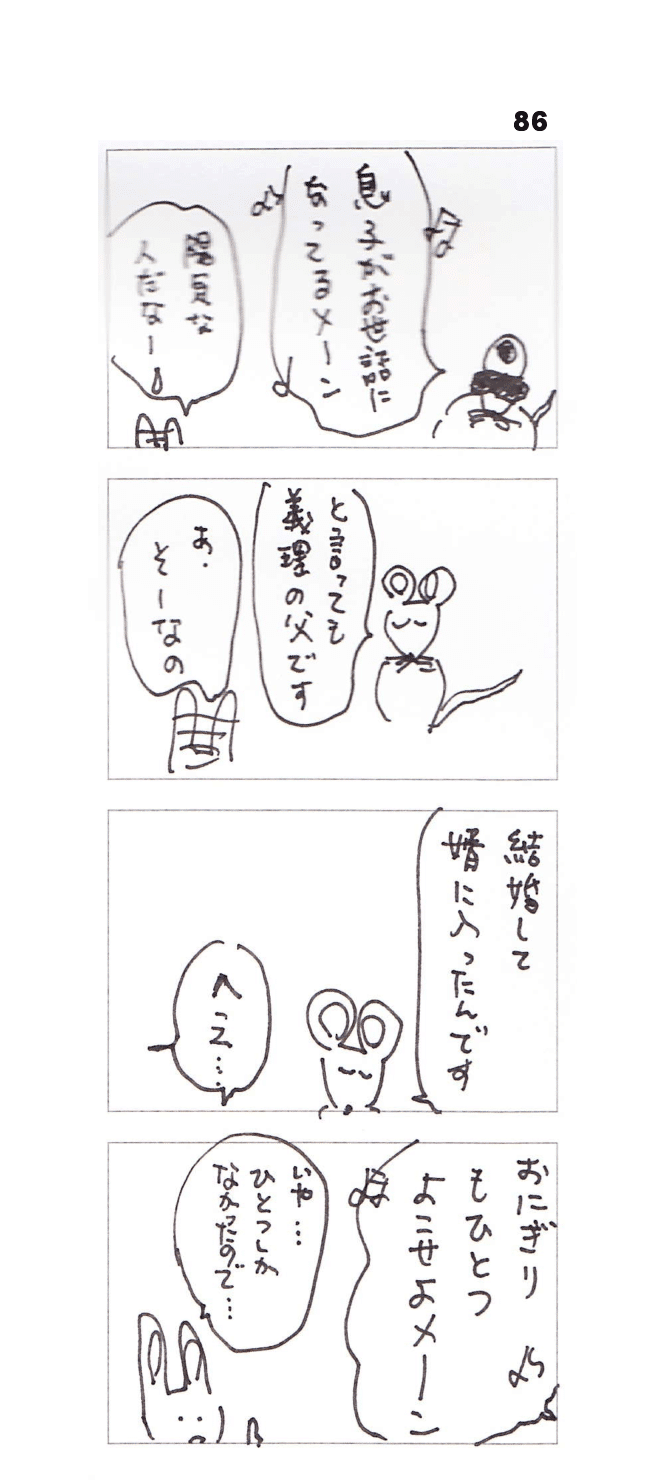 86
息子がお世話に
なってるメーン
陽気な
人だなー
と言っても
義理の父です
あ．
そーなの
結婚して
婿に入ったんです
へっえ…
おにぎり
もひとつ
よこせよメーン
いや…
ひとつしか
なかったので…